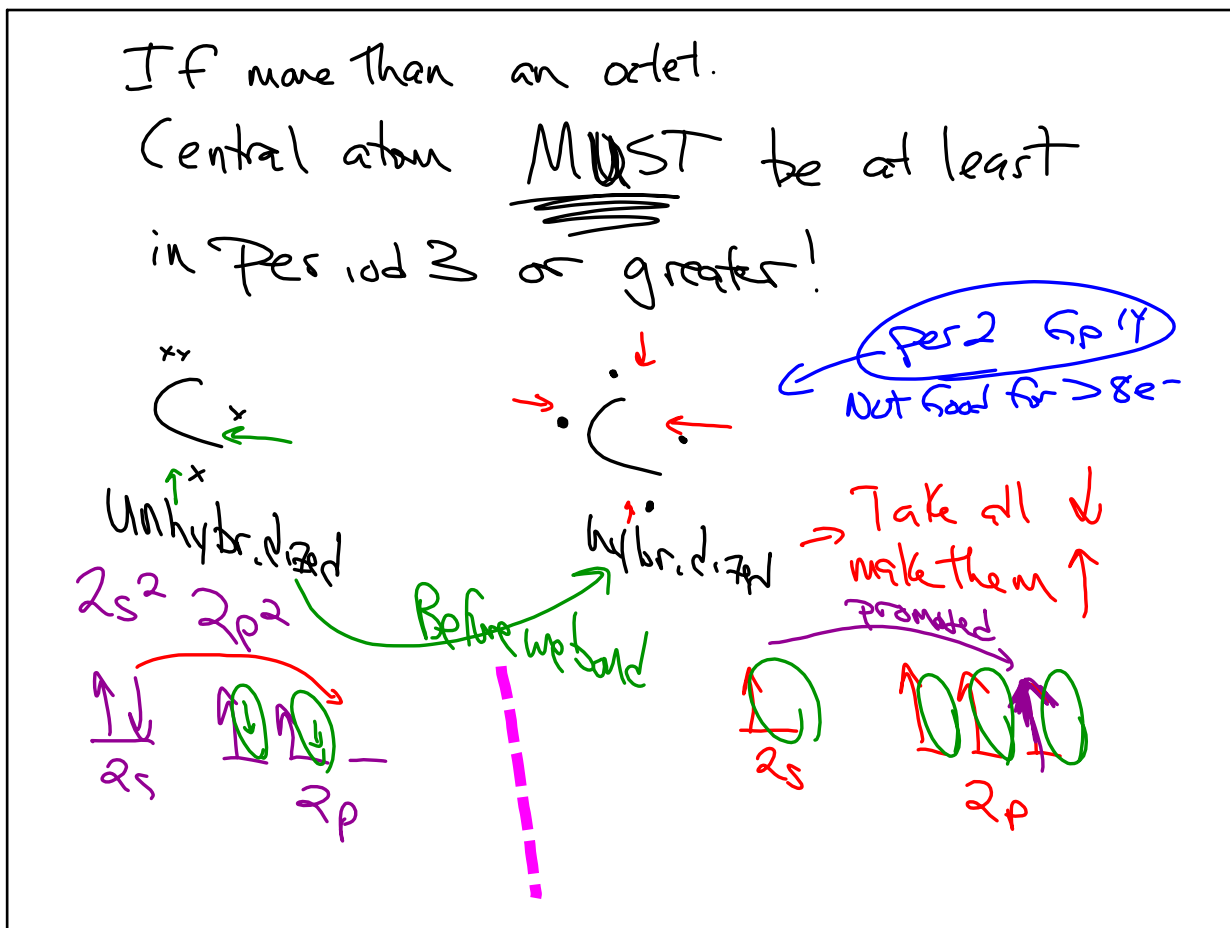 If more than an octet.
Central atom MUST be at least
in Period 3 or greater!
per 2 Gp 14
Not Good for > 8e-
xx
C x
x
C
Unhybridized
hybridized
→ Take all ↓
make them ↑
2s² 2p²
Before we bond
promoted
2s
2p
2s
2p